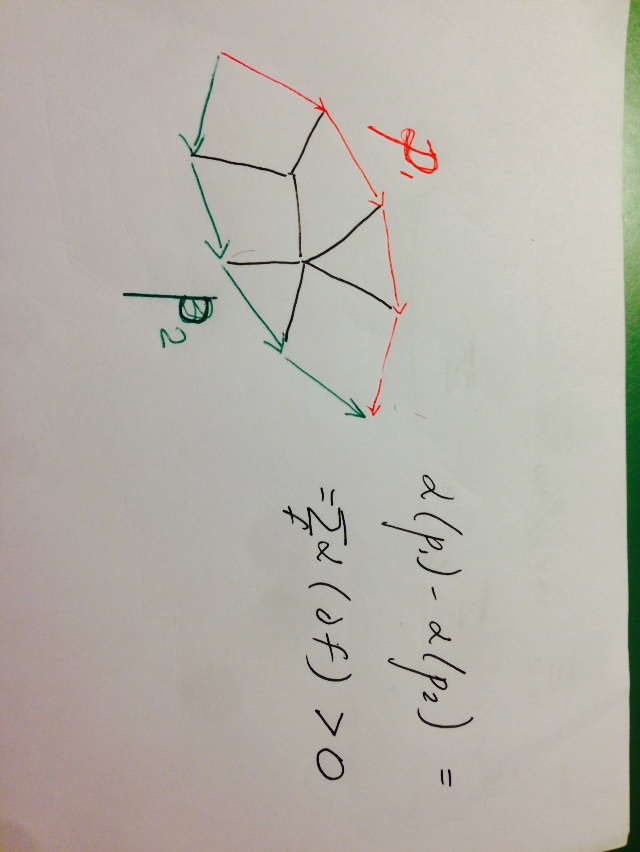 p₁
p₂
α(p₁) - α(p₂) =
= Σ_f α(∂f) > 0